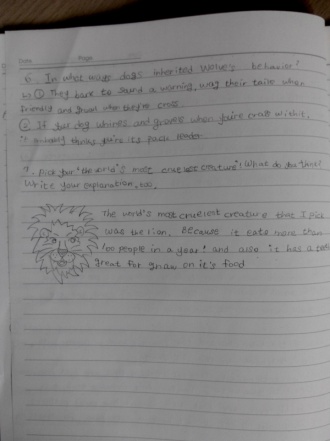 Date Page
6. In what ways dogs inherited wolve's behavior?
① They bark to sound a warning, wag their tails when
friendly and growl when they're cross
② If your dog whines and grovels when you're cross with it,
it thinks you're its pack leader
7. Pick your "the world's most cruelest creature"! What do you think?
Write your explanation, too.
The world's most cruelest creature that I pick
was the lion, Because it eats more than
100 people in a year! and also it has a teeth
great for gnaw on it's food